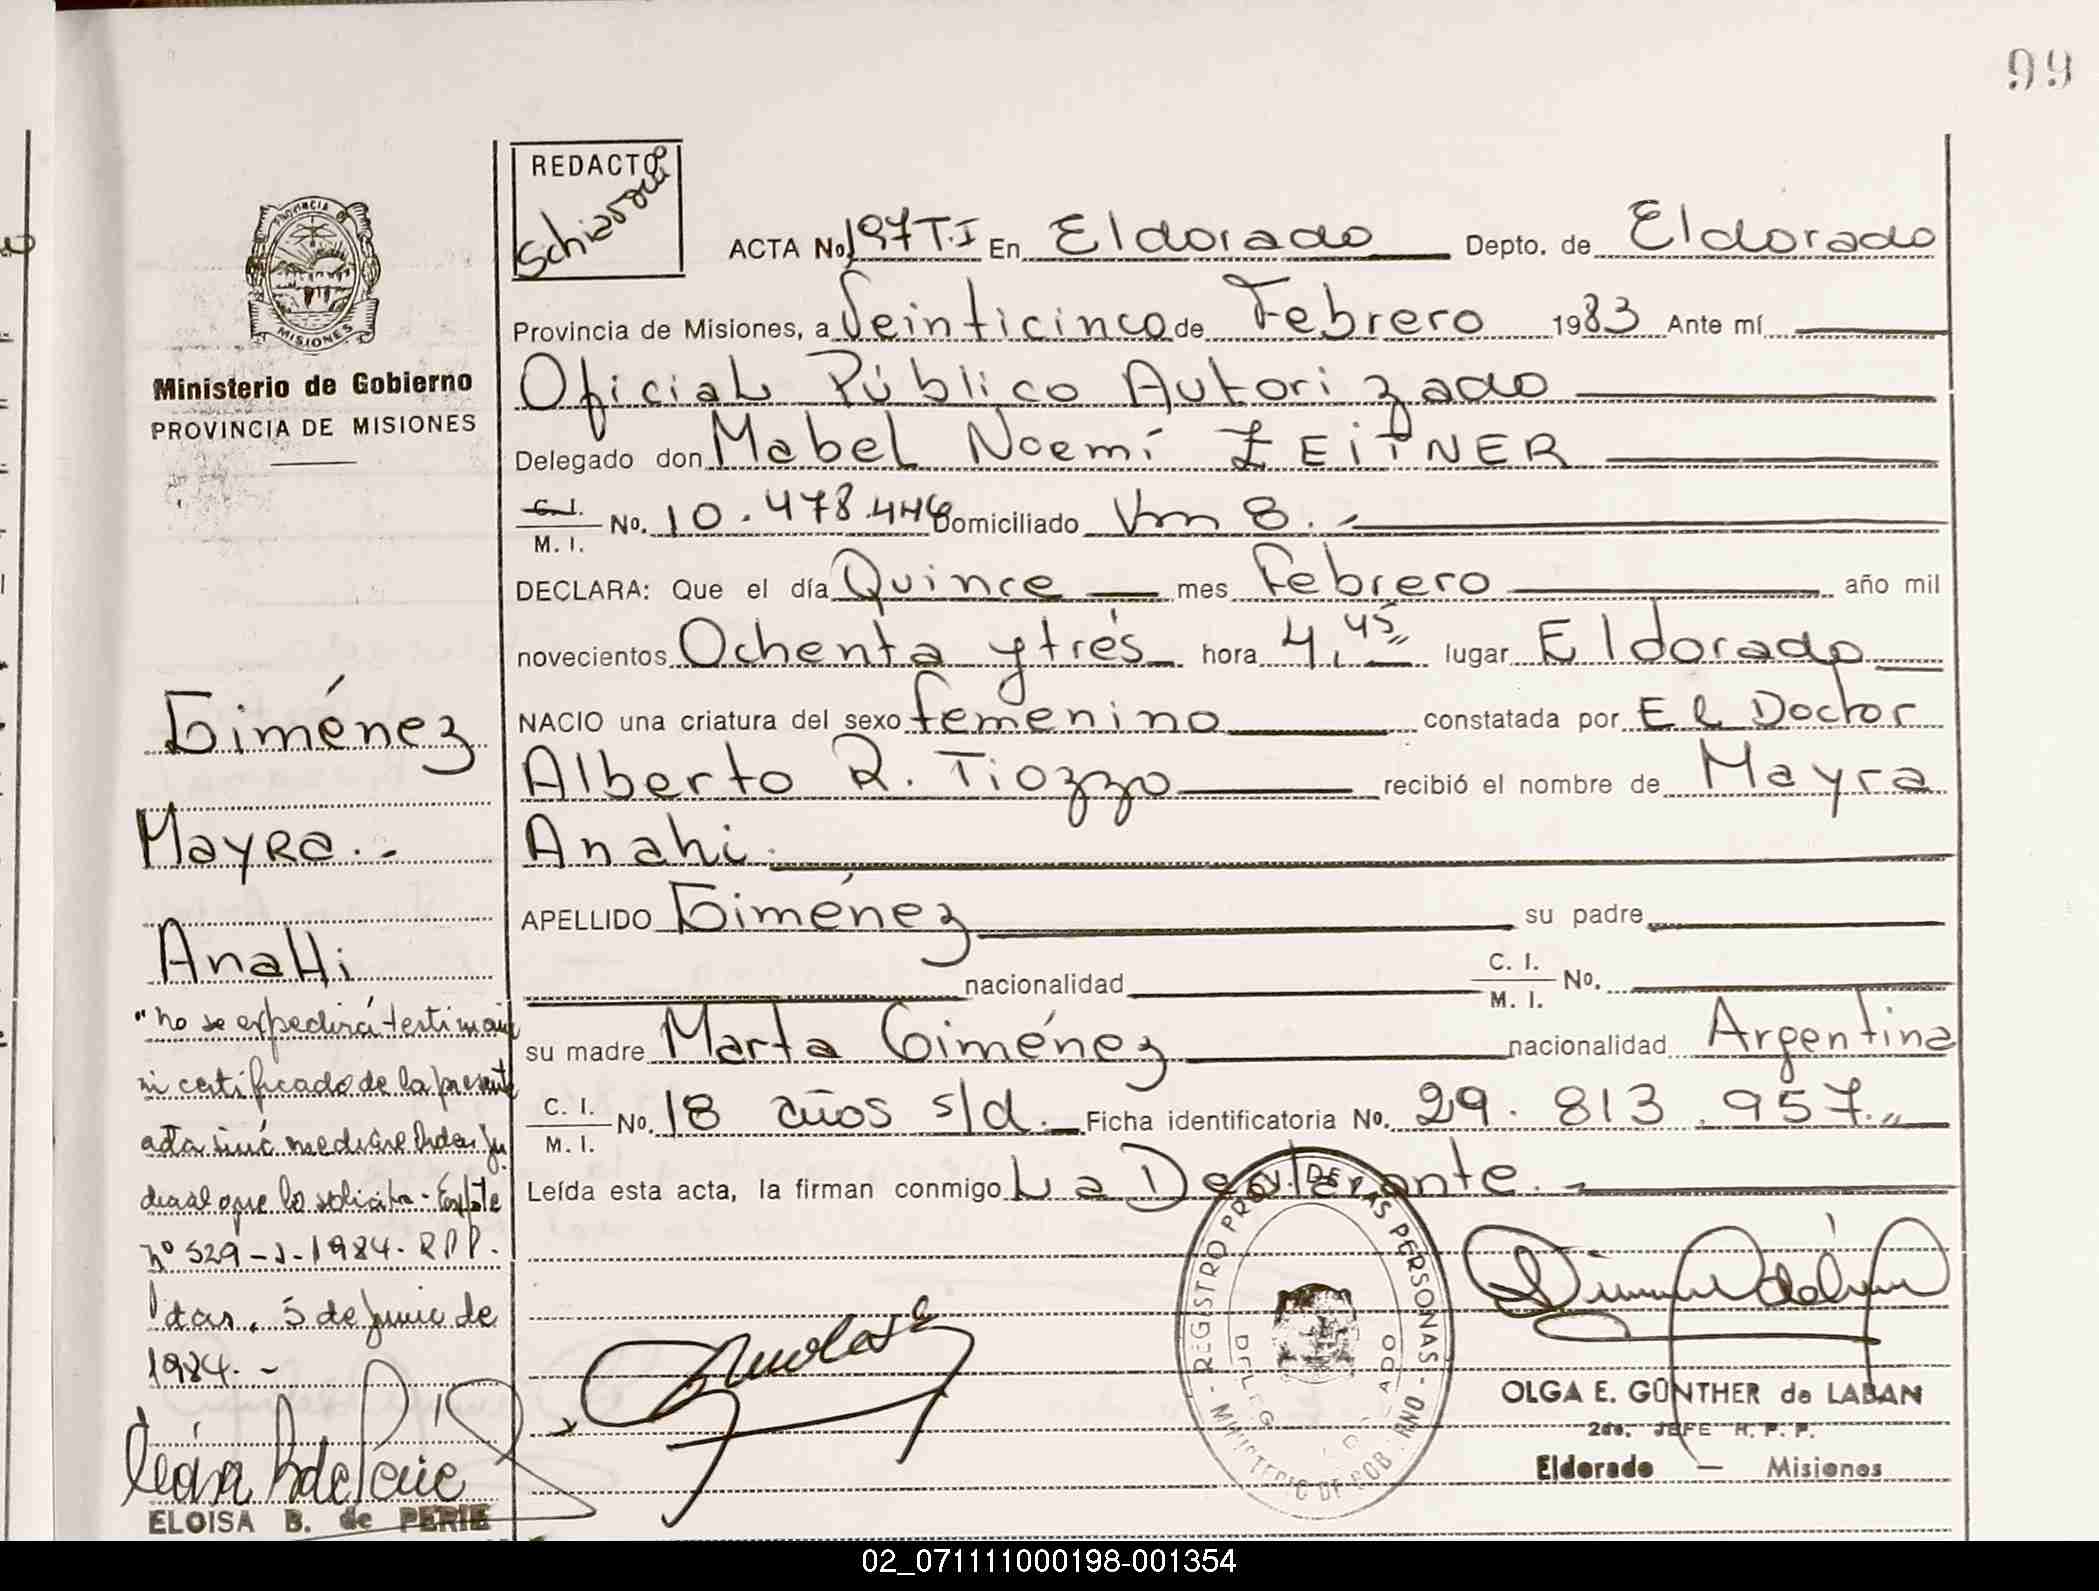 99
REDACTO
Schiavoni
PROVINCIA DE
MISIONES
Ministerio de Gobierno
PROVINCIA DE MISIONES
ACTA No. 197 T.I En Eldorado Depto. de Eldorado
Provincia de Misiones, a Veinticinco de Febrero 1983 Ante mí
Oficial Público Autorizado
Delegado don Mabel Noemí ZEITNER
C.I. M. I. No. 10.478.446 Domiciliado Km 8.-
DECLARA: Que el día Quince mes Febrero año mil
novecientos Ochenta y trés hora 4,45 lugar Eldorado
NACIO una criatura del sexo femenino constatada por El Doctor
Alberto R. Tiozzo recibió el nombre de Mayra
Anahi.
APELLIDO Giménez su padre
nacionalidad C. I. M. I. No.
su madre Marta Giménez nacionalidad Argentina
C. I. M. I. No. 18 años s/d. Ficha identificatoria No. 29.813.957.
Leída esta acta, la firman conmigo La Declarante.-
Giménez
Mayra.-
Anahi
"No se expedirá testimonio
ni certificado de la presente
acta sinó mediare Orden Ju
dicial que lo solicita - Expte
Nº 529-J-1984. RPP.
Pdas, 5 de junio de
1984.-
ELOISA B. de PERIE
REGISTRO PROV. DE LAS PERSONAS - MINISTERIO DE GOBIERNO
OLGA E. GÜNTHER de LABAN
2do. JEFE R. P. P.
Eldorado — Misiones
02_071111000198-001354